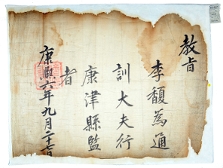 教旨
李馥為通
訓大夫行
康津縣監
者
康熙六年九月二十二日